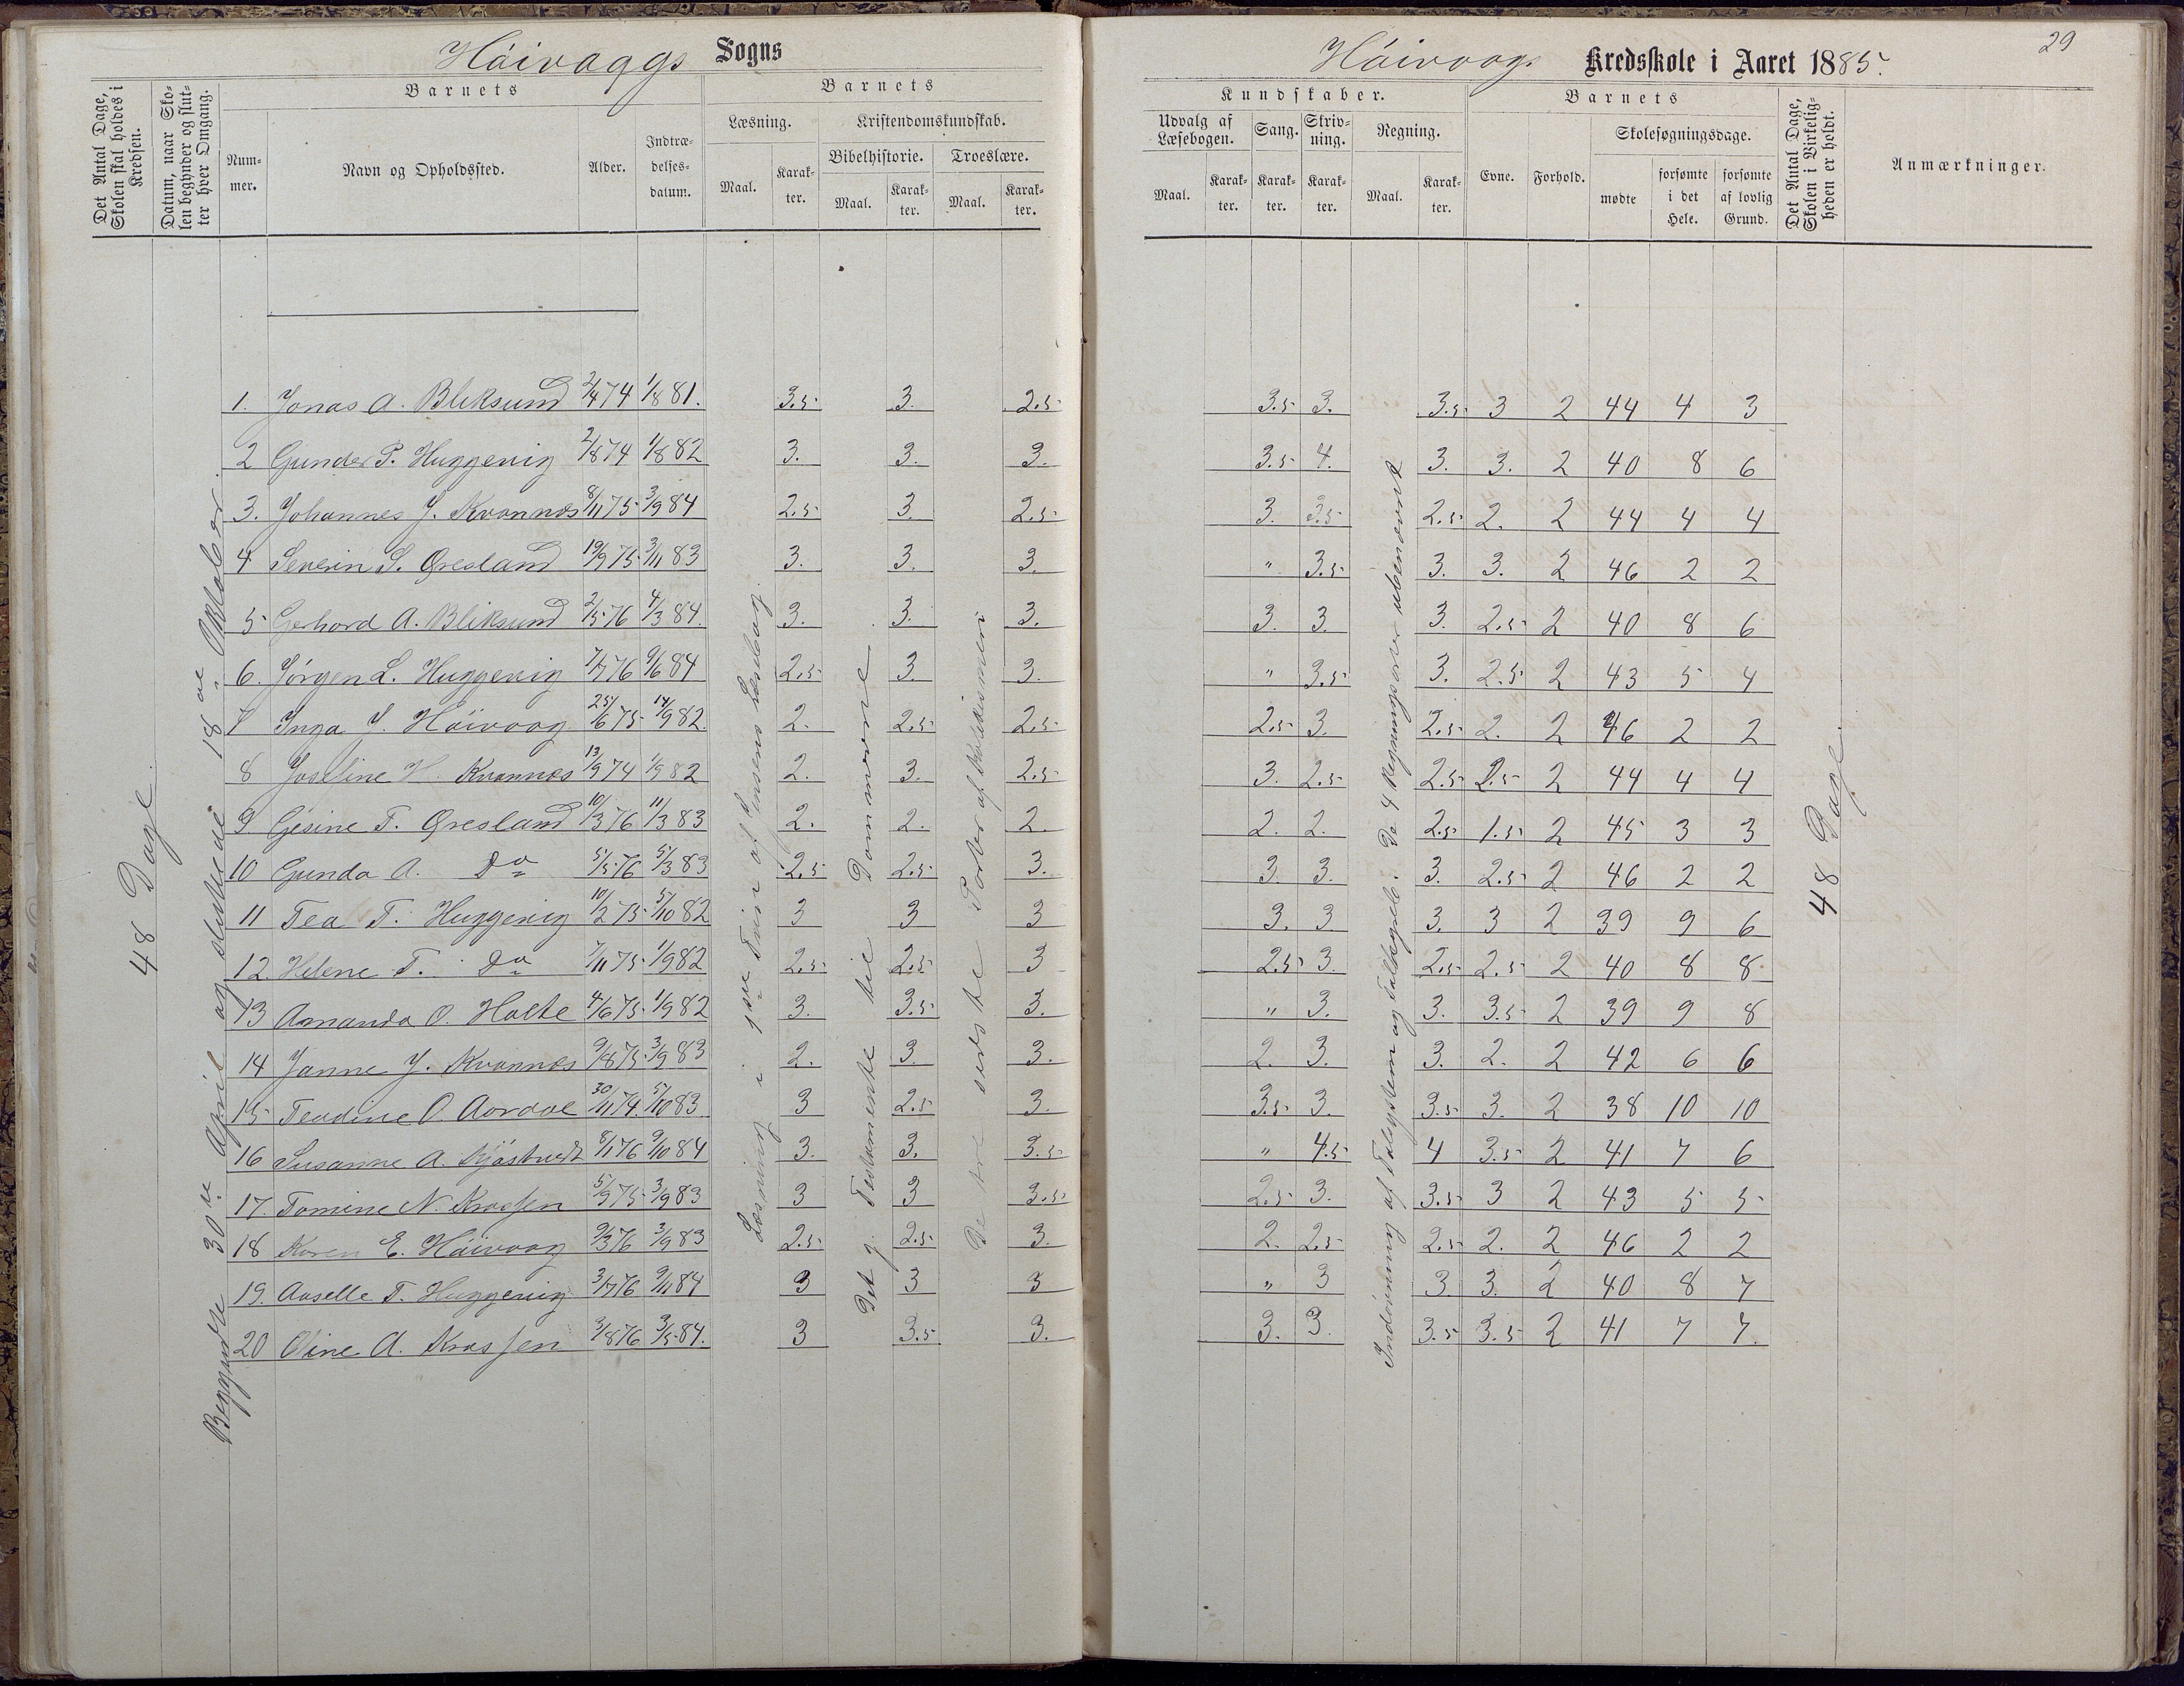 Höivaggs Sogns
Höivaag Kredsskole i Aaret 1885.
29
Det Antal Dage, Skolen skal holdes i Kredsen.
Datum, naar Skolen begynder og slutter hver Omgang.
Barnets
Nummer.
Navn og Opholdssted.
Alder.
Indtrædelsesdatum.
Barnets
Læsning.
Maal.
Karakter.
Kristendomskundskab.
Bibelhistorie.
Maal.
Karakter.
Troeslære.
Maal.
Karakter.
Kundskaber.
Udvalg af Læsebogen.
Maal.
Karakter.
Sang.
Karakter.
Skrivning.
Karakter.
Regning.
Maal.
Karakter.
Barnets
Evne.
Forhold.
Skolesøgningsdage.
mødte
forsømte i det Hele.
forsømte af lovlig Grund.
Det Antal Dage, Skolen i Virkeligheden er holdt.
Anmærkninger.
48 Dage.
Begyndte 30te April og sluttede 18de Oktober.
Læsning i 1ste Trin af Jensens Læsebog.
Det g. Testamente til Dommerne
De tre sidste Parter af Katekismen
Indøvning af Talsystem og Taldegrels. De 4 Regningsarter ubenævnt
48 Dage.
1. Jonas A. Bliksund 2/4 74 1/8 81. 3.5 3. 2.5 3.5 3. 3.5 3 2 44 4 3
2 Gunder P. Huggenig 2/8 74 1/8 82 3. 3. 3. 3.5 4. 3. 3. 2 40 8 6
3. Johannes J. Kvannes 8/11 75 3/9 84 2.5 3. 2.5 3. 3.5 2.5 2. 2 44 4 4
4 Severin S. Øresland 19/9 75 3/11 83 3. 3. 3. " 3.5 3. 3. 2 46 2 2
5 Gerhard A. Bliksund 2/5 76 4/3 84. 3. 3. 3. 3. 3. 3. 2.5 2 40 8 6
6. Jörgen L. Huggenig 7/7 76 9/6 84 2.5 3. 3. " 3.5 3. 2.5 2 43 5 4
7 Inga J. Höivaag 25/6 75 14/9 82. 2. 2.5 2.5 2.5 3. 2.5 2. 2 46 2 2
8 Josefine H. Kvannes 13/9 74 1/9 82 2. 3. 2.5 3. 2.5 2.5 2.5 2 44 4 4
9 Gesine T. Øresland 10/3 76 11/3 83 2. 2. 2. 2. 2. 2.5 1.5 2 45 3 3
10 Gunda A. Do 5/5 76 5/3 83 2.5 2.5 3. 3. 3. 3. 2.5 2 46 2 2
11 Tea T. Huggenig 10/2 75 5/10 82 3 3 3 3. 3 3. 3 2 39 9 6
12. Helene T. Do 7/11 75 1/9 82 2.5 2.5 3 2.5 3. 2.5 2.5 2 40 8 8
13 Amanda O. Holte 4/6 75 1/9 82 3. 3.5 3. " 3. 3. 3.5 2 39 9 8
14 Janne J. Kvannes 9/8 75 3/9 83 2. 3. 3. 2. 3. 3. 2. 2 42 6 6
15 Teodine O. Aardal 30/11 74 5/10 83 3 2.5 3. 3.5 3. 3.5 3. 2 38 10 10
16 Susanne A. Kjöstvedt 8/1 76 9/10 84 3. 3. 3.5 " 4.5 4 3.5 2 41 7 6
17. Tomine N. Krossen 5/9 75 3/9 83 3 3 3.5 2.5 3. 3.5 3 2 43 5 5
18 Karen E. Höivaag 9/3 76 3/9 83 2.5 2.5 3. 2. 2.5 2.5 2. 2 46 2 2
19. Aaselle T. Huggenig 3/7 76 9/11 84 3 3 3 " 3 3. 3. 2 40 8 7
20 Oline A. Krossen 3/8 76 3/5 84. 3 3.5 3. 3. 3. 3.5 3.5 2 41 7 7.